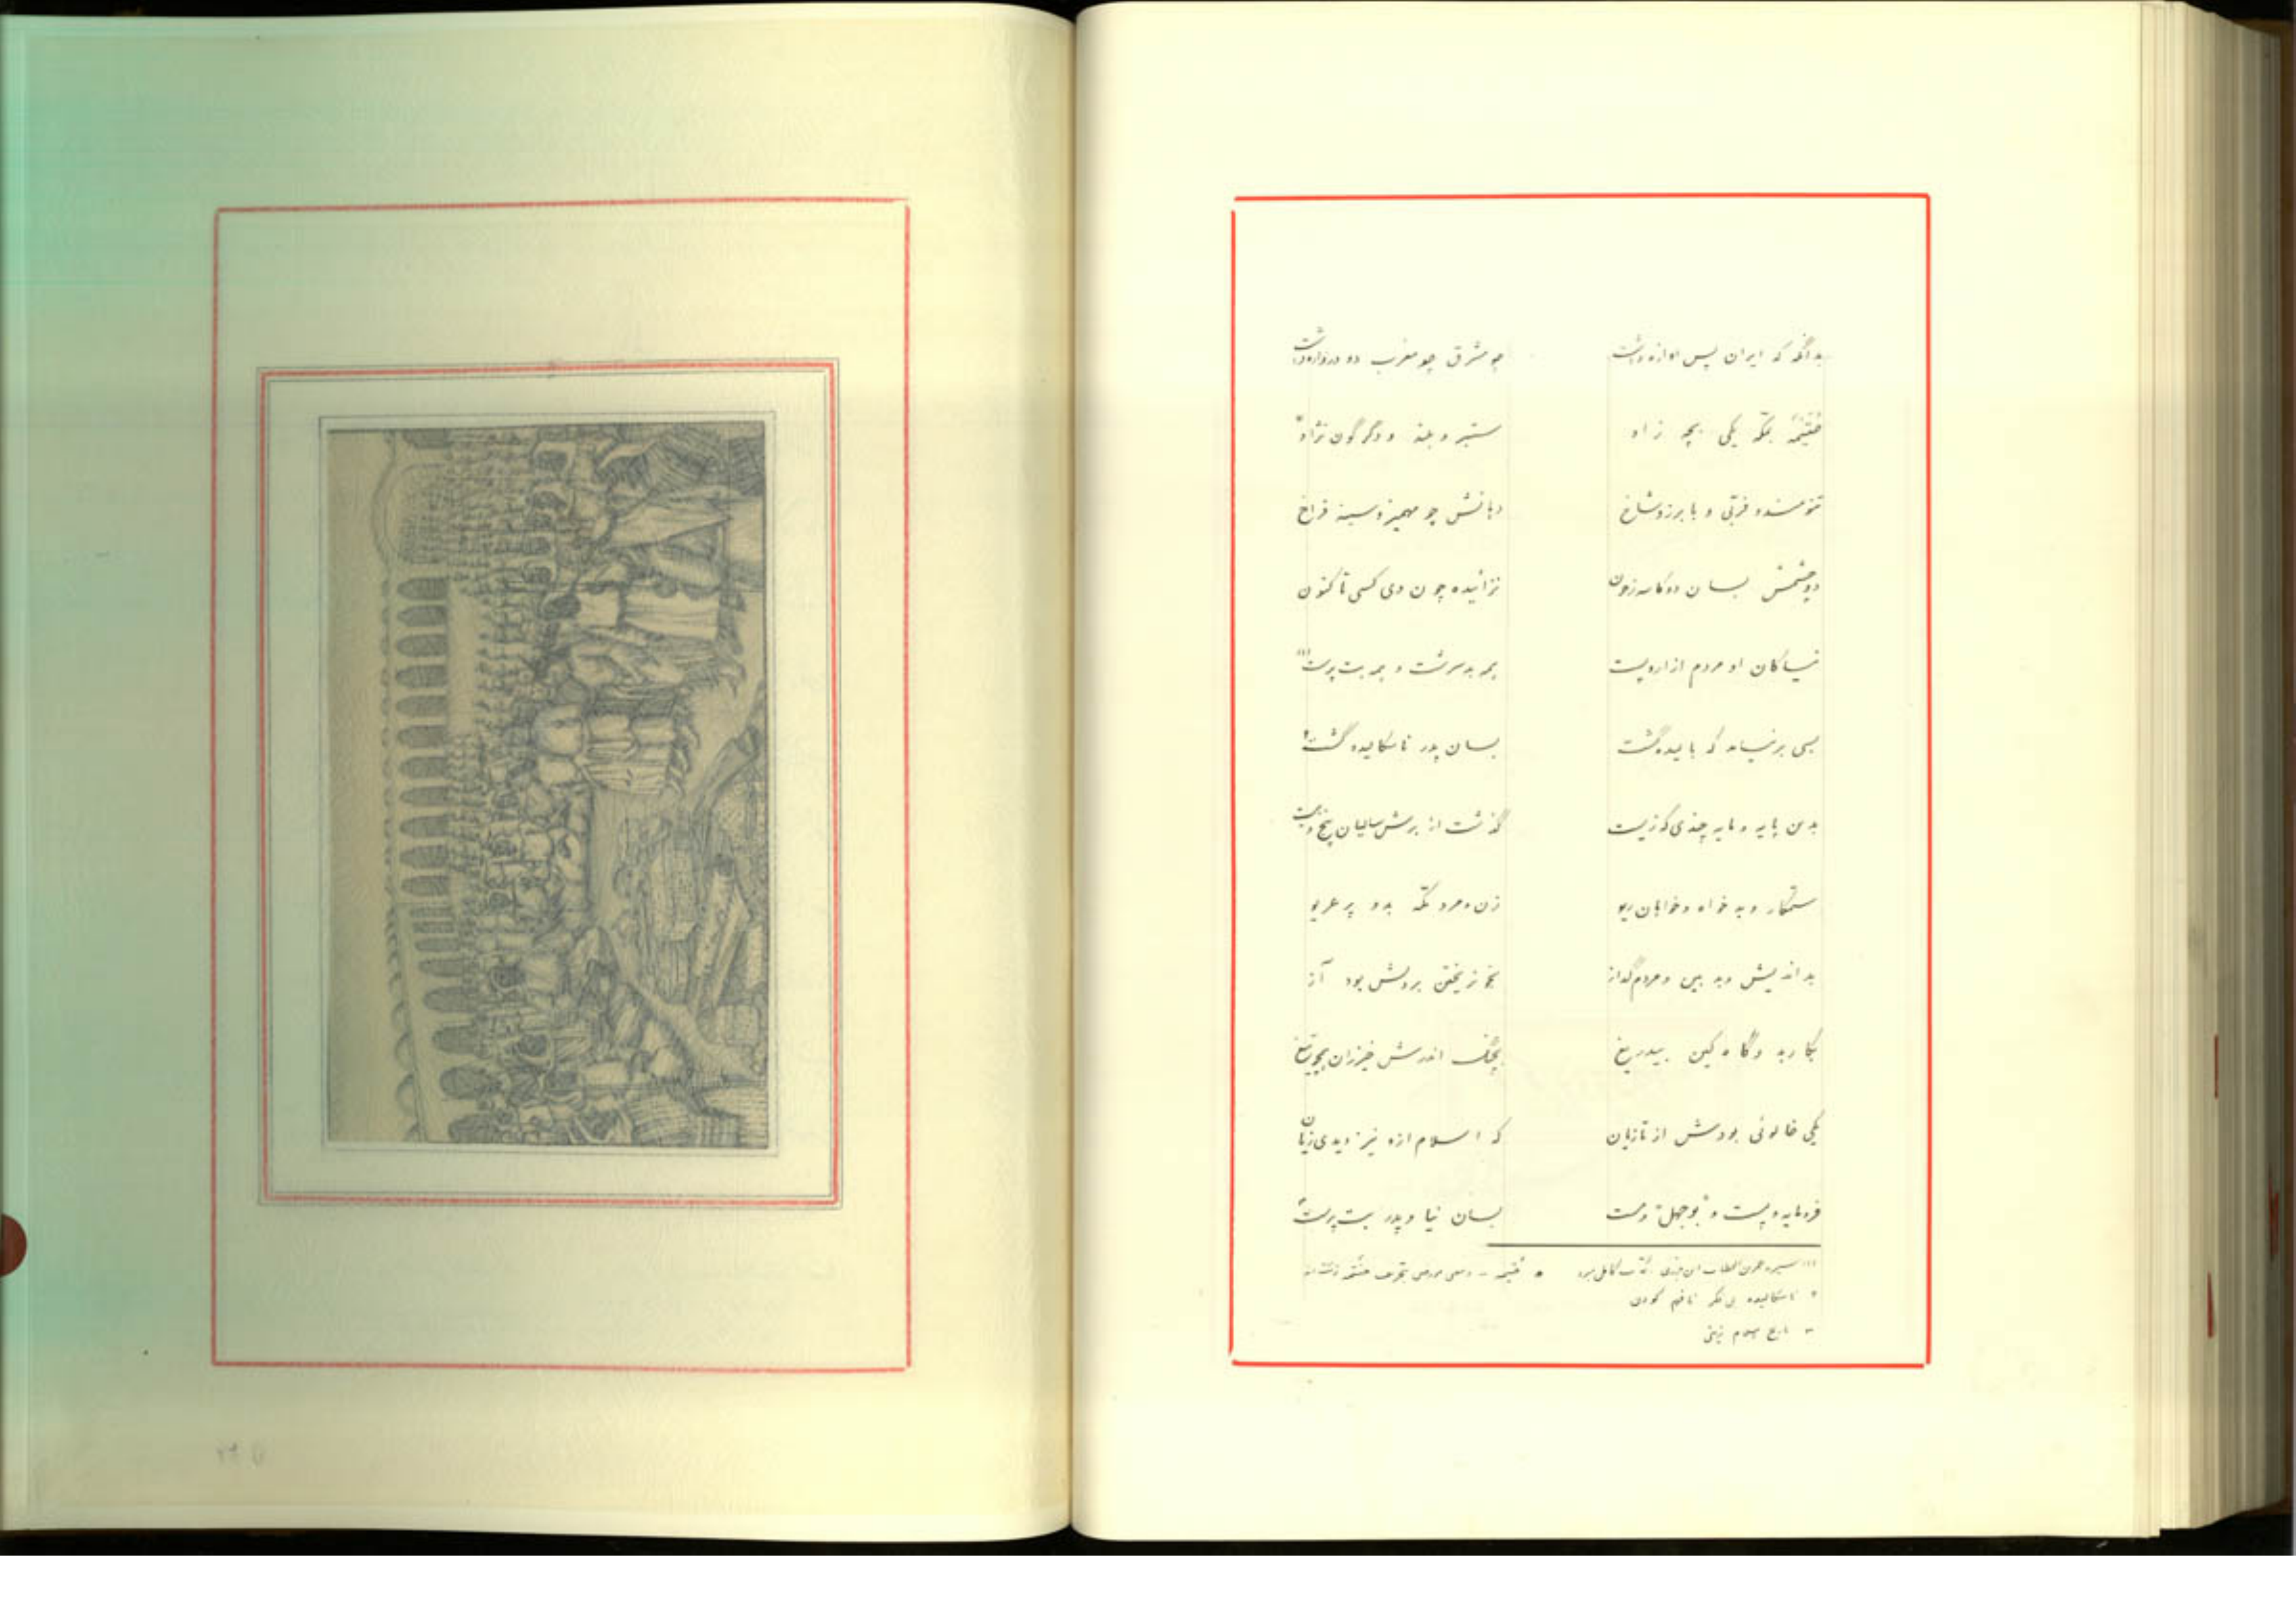 بدانگه که ایران پس آوازه داشت چو مشرق چو مغرب دو دروازه داشت
بمکه یکی بچه زاد ستبر و بلند و دگرگون نژاد
تنومند و فربی و با برز و شاخ دهانش چو مهمیز و سینه فراخ
دو چشمش بسان دو کاسه ز خون نزائیده چون وی کسی تا کنون
نیاکان او مردم از ارو پست همه بدسرشت و همه بت پرست (۱)
بسی برنیامد که بالیده گشت بسان پدر ناسگالیده گشت ۲
بدین پایه و مایه چندی که زیست گذشت از برش سالیان پنج و بیست
ستمکار و بدخواه و خواهان ریو زن و مرد مکه بدو پر غریو
بداندیش و بدبین و مردم گداز بخونریختن بردلش بود آز
بکار بد و گاه کین بیدریغ بچنگ اندرش خیزران همچو تیغ
یکی خالوئی بودش از تازیان که اسلام ازو نیز دیدی زیان
فرومایه و پست و بوجهل دست بسان نیا و پدر بت پرست ۳
(۱) سیره عمربن الخطاب ابن جوزی
۲ ناسگالیده بی فکر نافهم کودن
۳ تاریخ اسلام